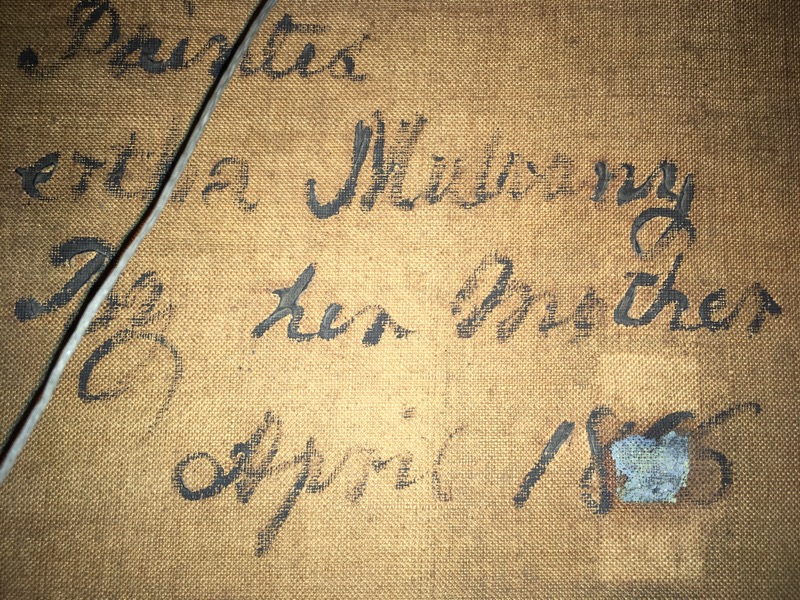 Painted
ertha Mulvany
By her Mother
April